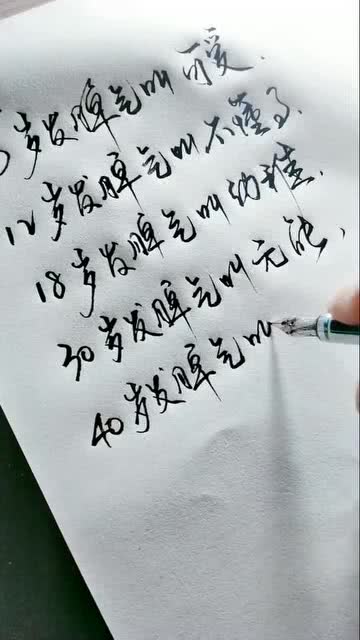 岁发脾气叫可爱.
12岁发脾气叫不懂了.
18岁发脾气叫幼稚.
30岁发脾气叫无能,
40岁发脾气叫